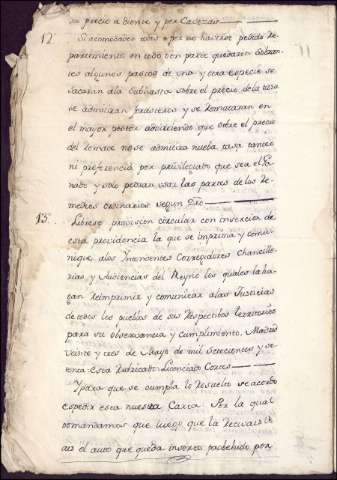 su precio a diente y por Cavezas
12. Si acomodados todos o por no haverse pedido re-
partimiento en todo o en parte quedaren sobran-
tes algunos pastos de una y otra especie se
sacaran ala subhasta sobre el precio de la tasa
se admitiran forasteros y se remataran en
el mayor postor advirtiendo que sobre el precio
del remate no se admitira nueva tasa tanteo
ni preferencia por privilegiado que sea el Ga-
nado y solo podran usar las partes de los re-
medios ordinarios segun Dro
13. Librese provision circular con insercion de
esta providencia la que se imprima y comu-
nique alos Intendentes Corregidores Chancille-
rias y Audiencias del Reyno los quales la ha-
gan reimprimir y comunicar alas Justicias
de todos los pueblos de sus respectibos territorios
para su observancia y cumplimiento. Madrid
veinte y tres de Mayo de mil setecientos y se-
tenta esta rubricado Licenciado Cortes
Y para que se cumpla lo resuelto se acordo
expedir esta nuestra Carta Por la qual
os mandamos que luego que la recivais
veais el auto que queda inserto probehido por